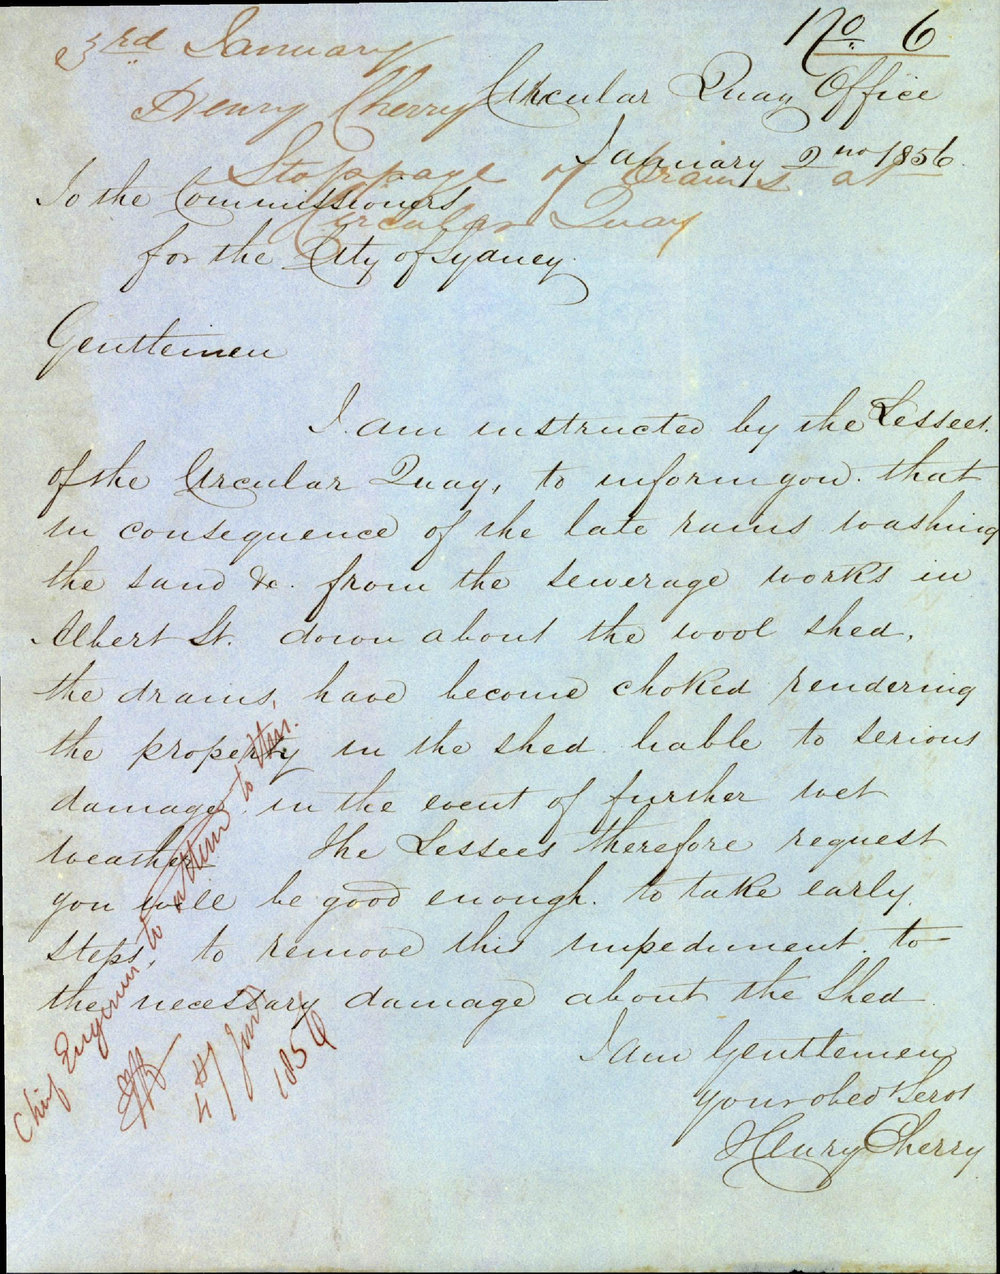 No. 6
3rd January
Henry Cherry
Stoppage of Drains at
Circular Quay
Circular Quay Office
January 2nd 1856.
To the Commissioners
for the City of Sydney.
Gentlemen
I am instructed by the Lessees
of the Circular Quay, to inform you that
in consequence of the late rains washing
the sand &c. from the sewerage works in
Albert St. down about the wool shed,
the drains, have become choked rendering
the property in the shed liable to serious
damage, in the event of further wet
weather The Lessees therefore request
you will be good enough to take early
steps, to remove this impediment to
the necessary damage about the Shed
I am Gentlemen
your obed Servt
Henry Cherry
Chief Engineer to attend to this.
4th Jany
1856